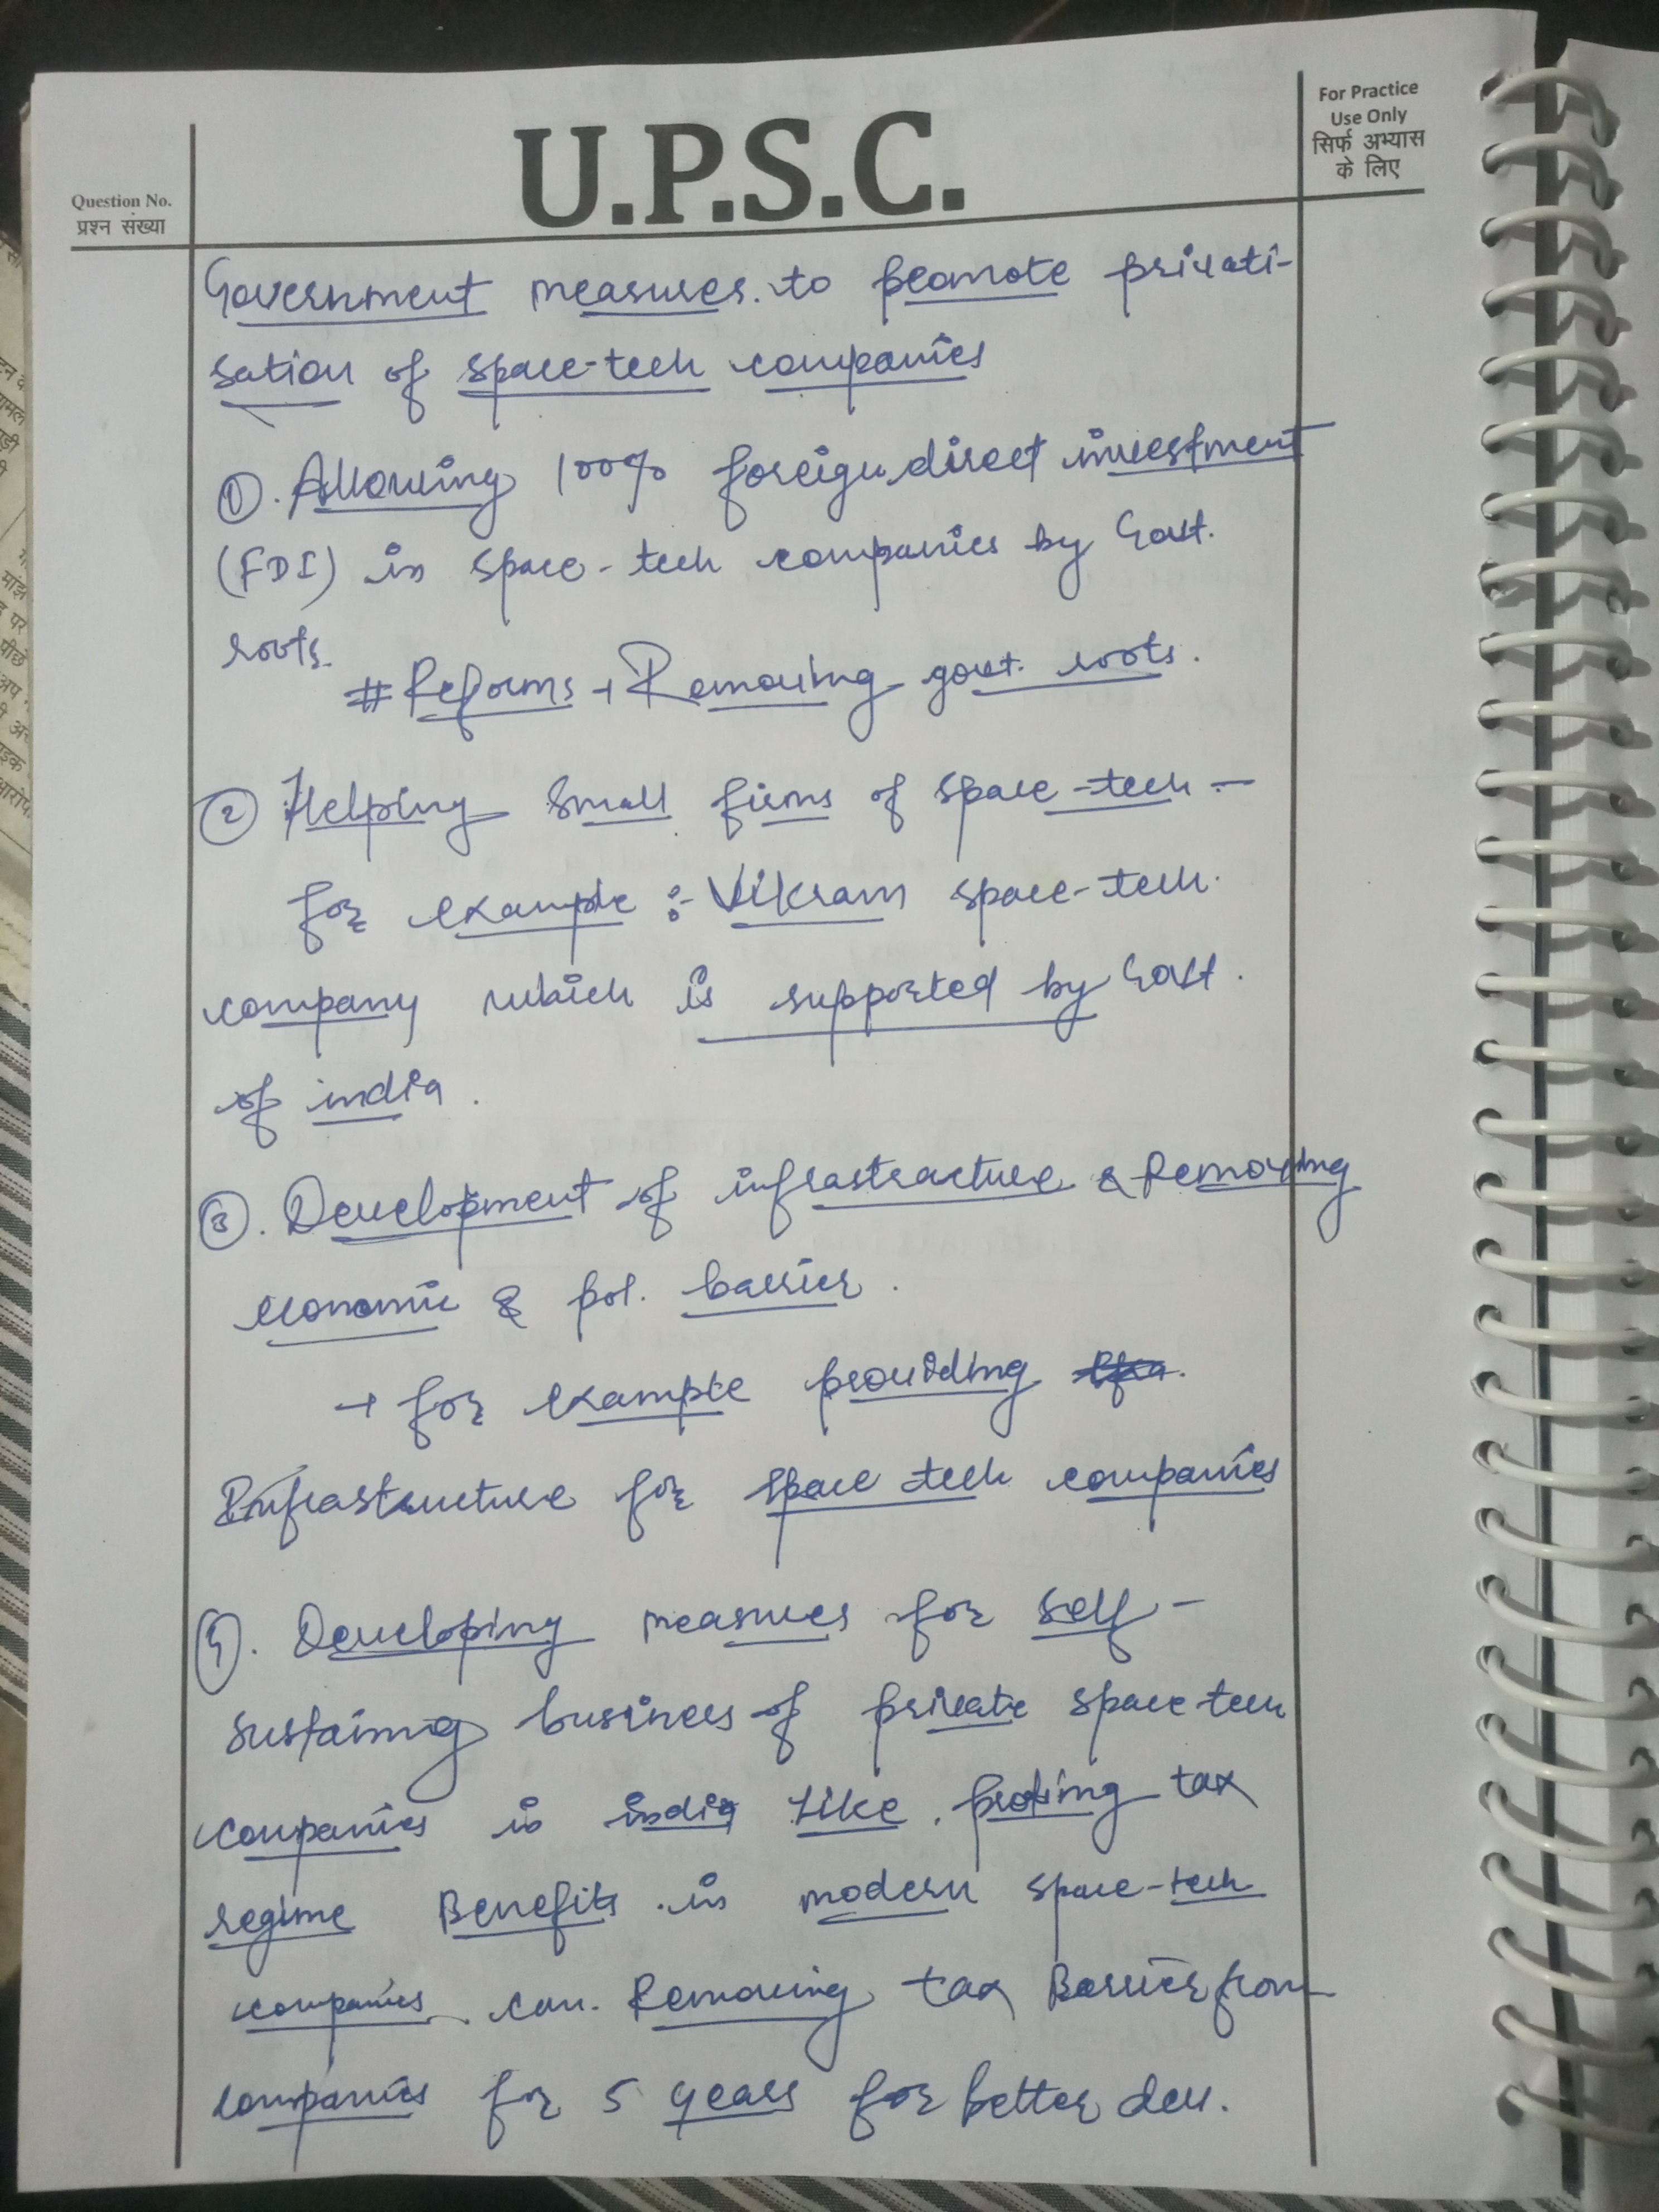 For Practice
Use Only
सिर्फ अभ्यास
के लिए
U.P.S.C.
Question No.
प्रश्न संख्या
Government measures to promote privati-
sation of space-tech companies
① Allowing 100% foreign direct investment
(FDI) in space-tech companies by Govt.
roots.
# Reforms → Removing govt. roots.
② Helping small firms of space-tech -
for example :- Vikram space-tech
company which is supported by Govt.
of india.
③. Development of infrastracture & Removing
economic & pol. barrier.
→ for example providing
Infrastructure for space tech companies
④. Developing measures for self-
sustaining business of private space tech
companies in india like, proving tax
regime Benefits in modern space-tech
companies can. Removing tax Barrier from
companies for 5 years for better dev.